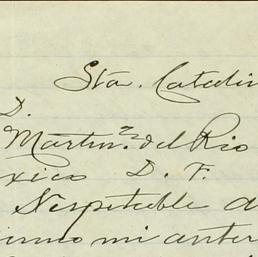 Sta. Catalin
D.
Martnz. del Rio
xico D. F.
Respetable
mi anter